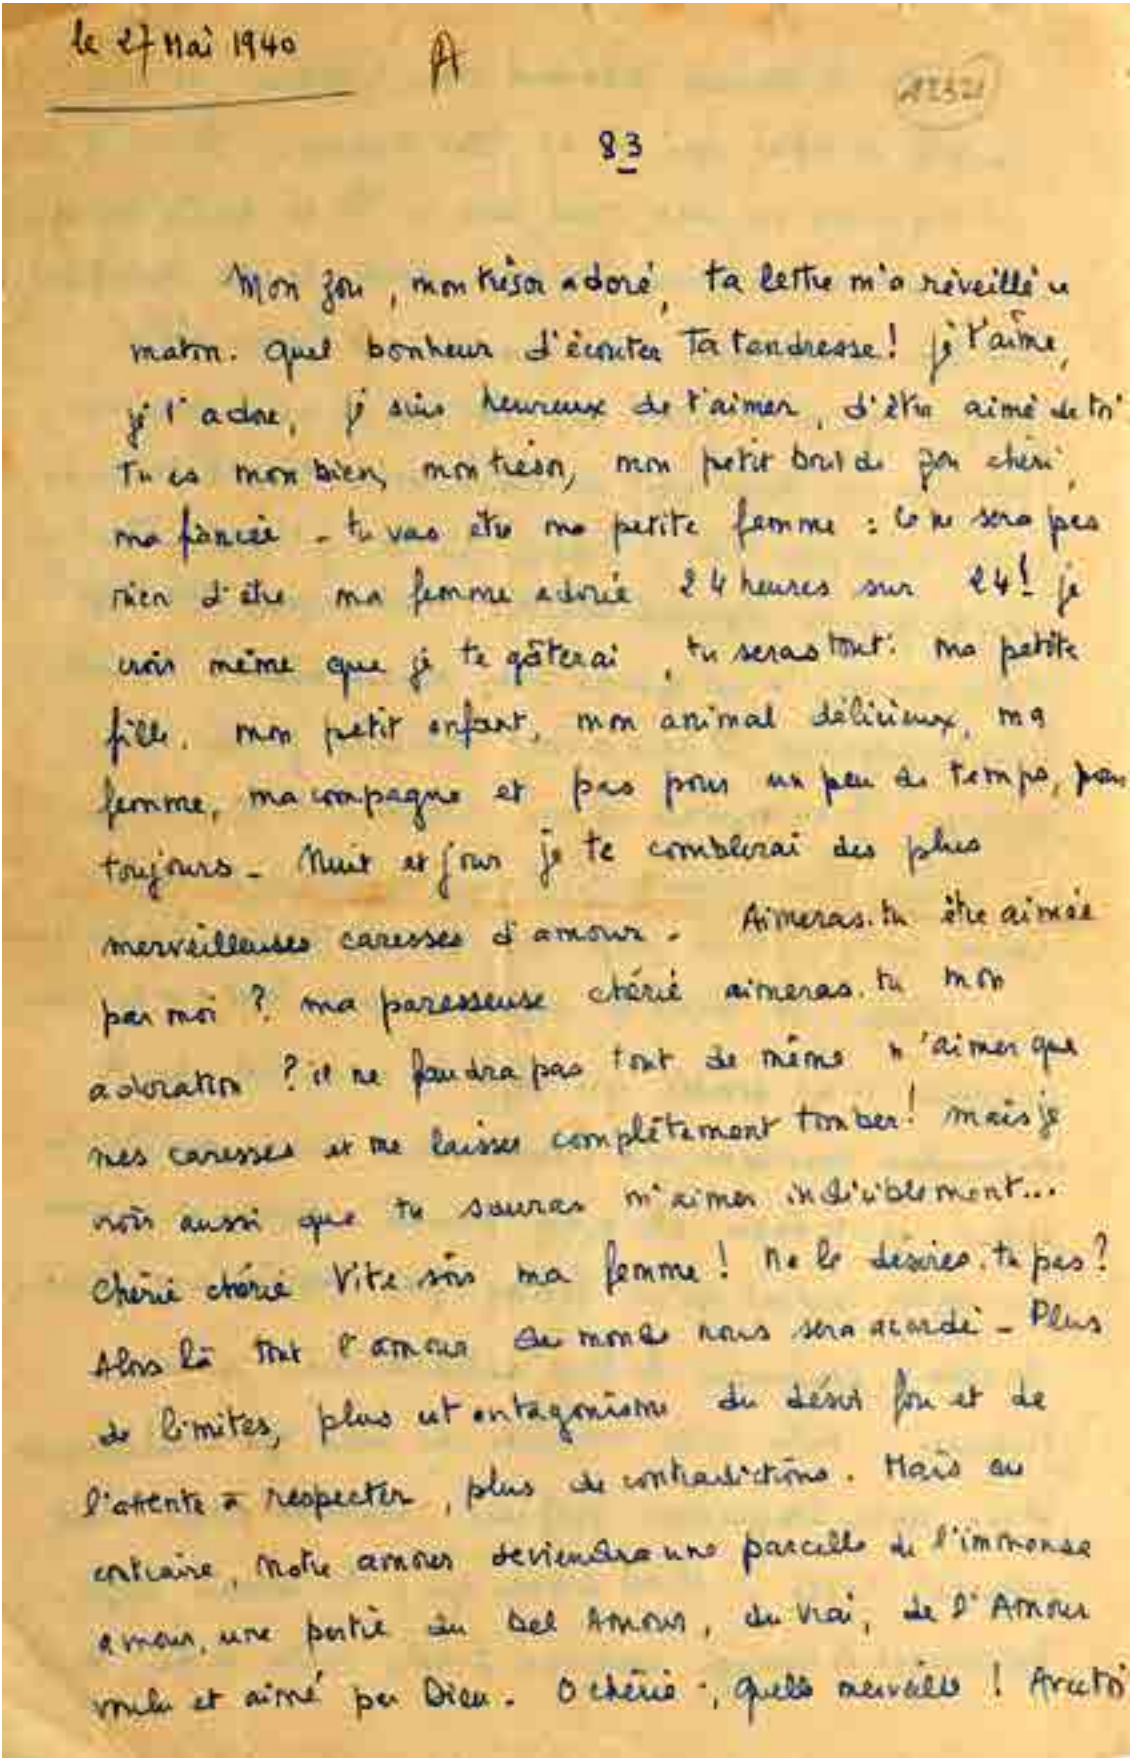 le 27 Mai 1940
A
83
Mon Zou, mon trésor adoré, ta lettre m'a réveillé ce
matin. Quel bonheur d'écouter ta tendresse! je t'aime,
je t'adore, je suis heureux de t'aimer, d'être aimé de toi
Tu es mon bien, mon trésor, mon petit bout de Zou chéri,
ma fiancée - tu vas être ma petite femme : Ce ne sera pas
rien d'être ma femme adorée 24 heures sur 24! je
crois même que je te gâterai, tu seras tout: ma petite
fille, mon petit enfant, mon animal délicieux, ma
femme, ma compagne et pas pour un peu de temps, pour
toujours - Nuit et jour je te comblerai des plus
merveilleuses caresses d'amour - Aimeras-tu être aimée
par moi ? ma paresseuse chérie aimeras-tu mon
adoration ? il ne faudra pas tout de même n'aimer que
mes caresses et me laisser complètement tomber! mais je
crois aussi que tu sauras m'aimer indiciblement...
Chérie chérie Vite sois ma femme! Ne le désires-tu pas?
Alors là tout l'amour du monde nous sera acordé - Plus
de limites, plus cet antagonisme du désir fou et de
l'attente à respecter, plus de contradictions. Mais au
contraire, Notre amour deviendra une parcelle de l'immense
amour, une partie du bel Amour, du Vrai, de l'Amour
voulu et aimé par Dieu. O chérie, quelle merveille ! Avec toi